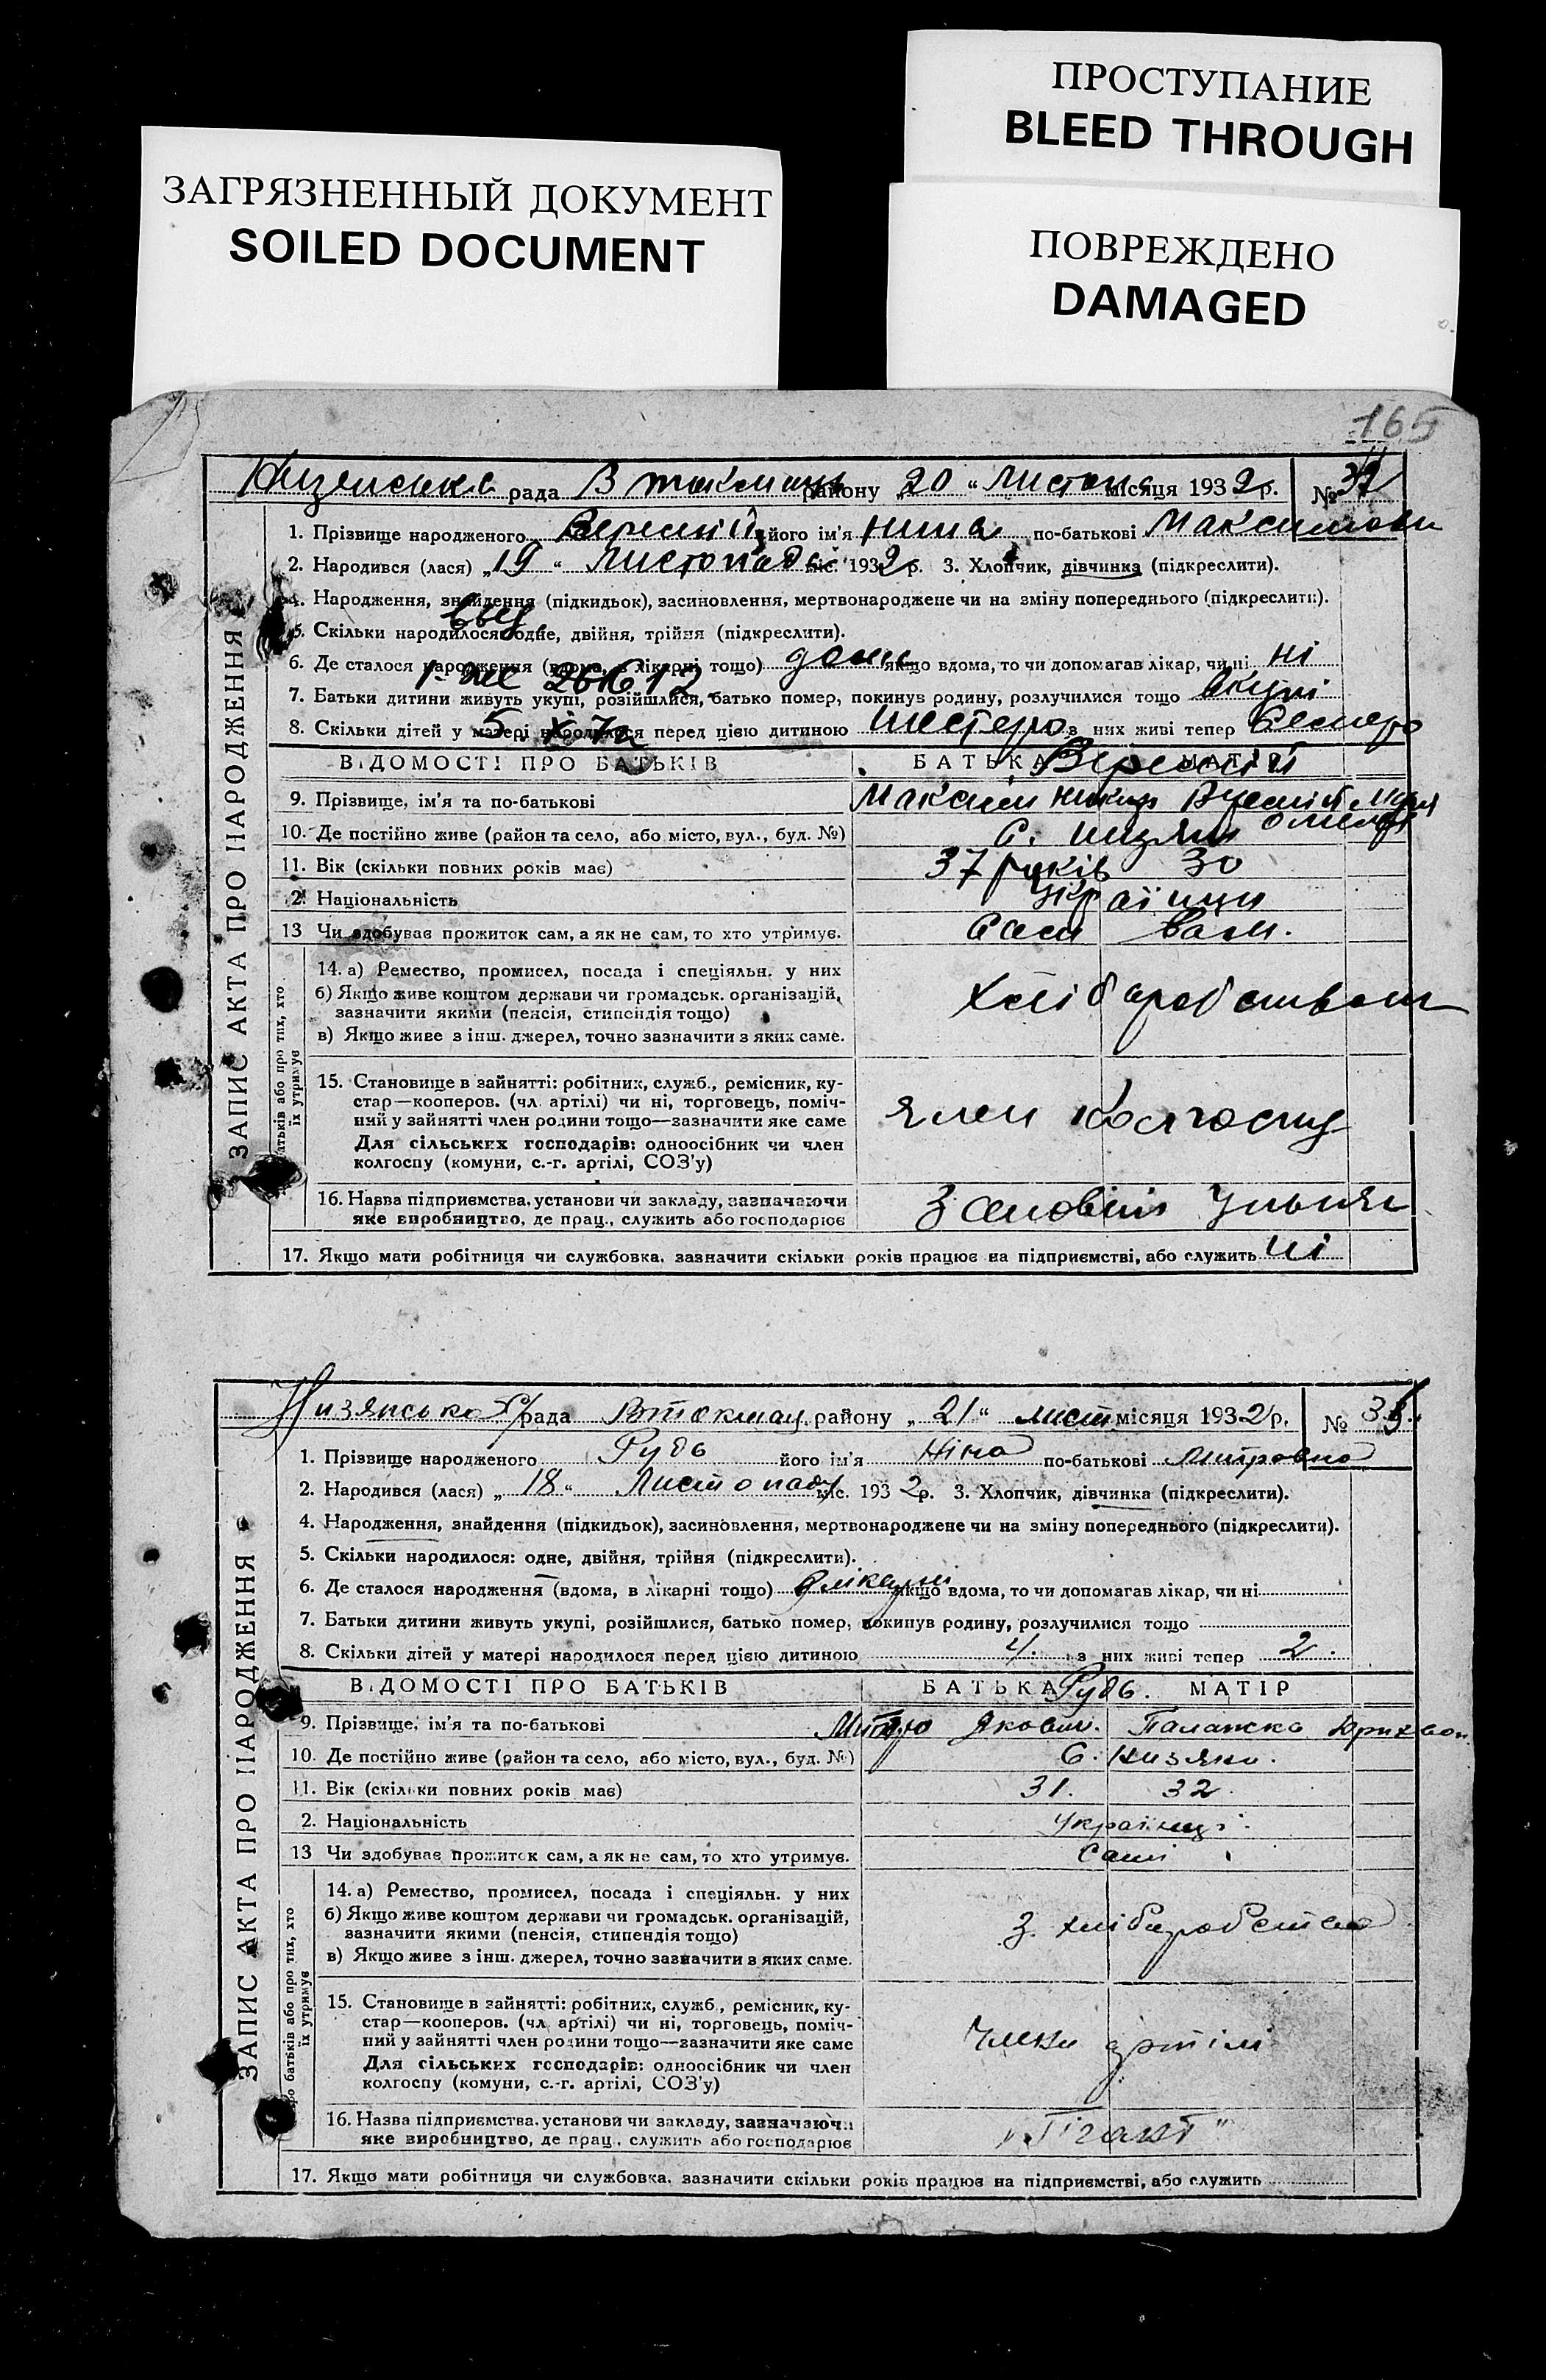 ПРОСТУПАНИЕ
BLEED THROUGH
ЗАГРЯЗНЕННЫЙ ДОКУМЕНТ
SOILED DOCUMENT
ПОВРЕЖДЕНО
DAMAGED
165
ЗАПИС АКТА ПРО НАРОДЖЕННЯ
рада В токмацьк району „20“ Листопа місяця 1932 р. №
1. Прізвище народженого його ім'я Нина по-батькові Максимовн
2. Народився (лася) „19“ Листопада міс. 1932 р. 3. Хлопчик, дівчинка (підкреслити).
4. Народження, знайдення (підкидьок), засиновлення, мертвонароджене чи на зміну попереднього (підкреслити).
5. Скільки народилося: одне, двійня, трійня (підкреслити).
6. Де сталося народження (вдома, в лікарні тощо) дома якщо вдома, то чи допомагав лікар, чи ні ні
7. Батьки дитини живуть укупі, розійшлися, батько помер, покинув родину, розлучилися тощо вкупі
8. Скільки дітей у матері народилося перед цією дитиною шестеро з них живі тепер
ВІДОМОСТІ ПРО БАТЬКІВ БАТЬКА МАТІР
9. Прізвище, ім'я та по-батькові Максим
10. Де постійно живе (район та село, або місто, вул., буд. №) С. Низяни
11. Вік (скільки повних років має) 37 років 30
2. Національність Українци
13 Чи здобував прожиток сам, а як не сам, то хто утримує. Сами
14. а) Ремество, промисел, посада і спеціяльн. у них
б) Якщо живе коштом держави чи громадськ. організацій,
зазначити якими (пенсія, стипендія тощо)
в) Якщо живе з інш. джерел, точно зазначити з яких саме.
Хліборобством
атьків або про тих, хто
їх утримує
15. Становище в зайнятті: робітник, служб., ремісник, ку-
стар—кооперов. (чл. артілі) чи ні, торговець, поміч-
ний у зайнятті член родини тощо—зазначити яке саме
Для сільських господарів: одноосібник чи член
колгоспу (комуни, с.-г. артілі, СОЗ'у)
член колгоспу
16. Назва підприємства, установи чи закладу, зазначаючи
яке виробництво, де прац., служить або господарює
17. Якщо мати робітниця чи службовка, зазначити скільки років працює на підприємстві, або служить ні
ЗАПИС АКТА ПРО НАРОДЖЕННЯ
Низянсько с/рада Втокмац. району „21“ лист місяця 1932 р. №
1. Прізвище народженого Рудь його ім'я Ніна по-батькові Митровна
2. Народився (лася) „18“ Листопаду міс. 1932 р. 3. Хлопчик, дівчинка (підкреслити).
4. Народження, знайдення (підкидьок), засиновлення, мертвонароджене чи на зміну попереднього (підкреслити).
5. Скільки народилося: одне, двійня, трійня (підкреслити).
6. Де сталося народження (вдома, в лікарні тощо) в лікарні якщо вдома, то чи допомагав лікар, чи ні
7. Батьки дитини живуть укупі, розійшлися, батько помер, покинув родину, розлучилися тощо
8. Скільки дітей у матері народилося перед цією дитиною 4. з них живі тепер 2.
ВІДОМОСТІ ПРО БАТЬКІВ БАТЬКА Рудь. МАТІР
9. Прізвище, ім'я та по-батькові Якович. Палажка
10. Де постійно живе (район та село, або місто, вул., буд. №) С. Низяни.
11. Вік (скільки повних років має) 31. 32.
2. Національність Українці.
13 Чи здобував прожиток сам, а як не сам, то хто утримує. Самі
14. а) Ремество, промисел, посада і спеціяльн. у них
б) Якщо живе коштом держави чи громадськ. організацій,
зазначити якими (пенсія, стипендія тощо)
в) Якщо живе з інш. джерел, точно зазначити з яких саме.
З. хліборобства
ро батьків або про тих, хто
їх утримує
15. Становище в зайнятті: робітник, служб., ремісник, ку-
стар—кооперов. (чл. артілі) чи ні, торговець, поміч-
ний у зайнятті член родини тощо—зазначити яке саме
Для сільських господарів: одноосібник чи член
колгоспу (комуни, с.-г. артілі, СОЗ'у)
Члени артілі
16. Назва підприємства, установи чи закладу, зазначаючи
яке виробництво, де прац., служить або господарює
„Гігант“
17. Якщо мати робітниця чи службовка, зазначити скільки років працює на підприємстві, або служить